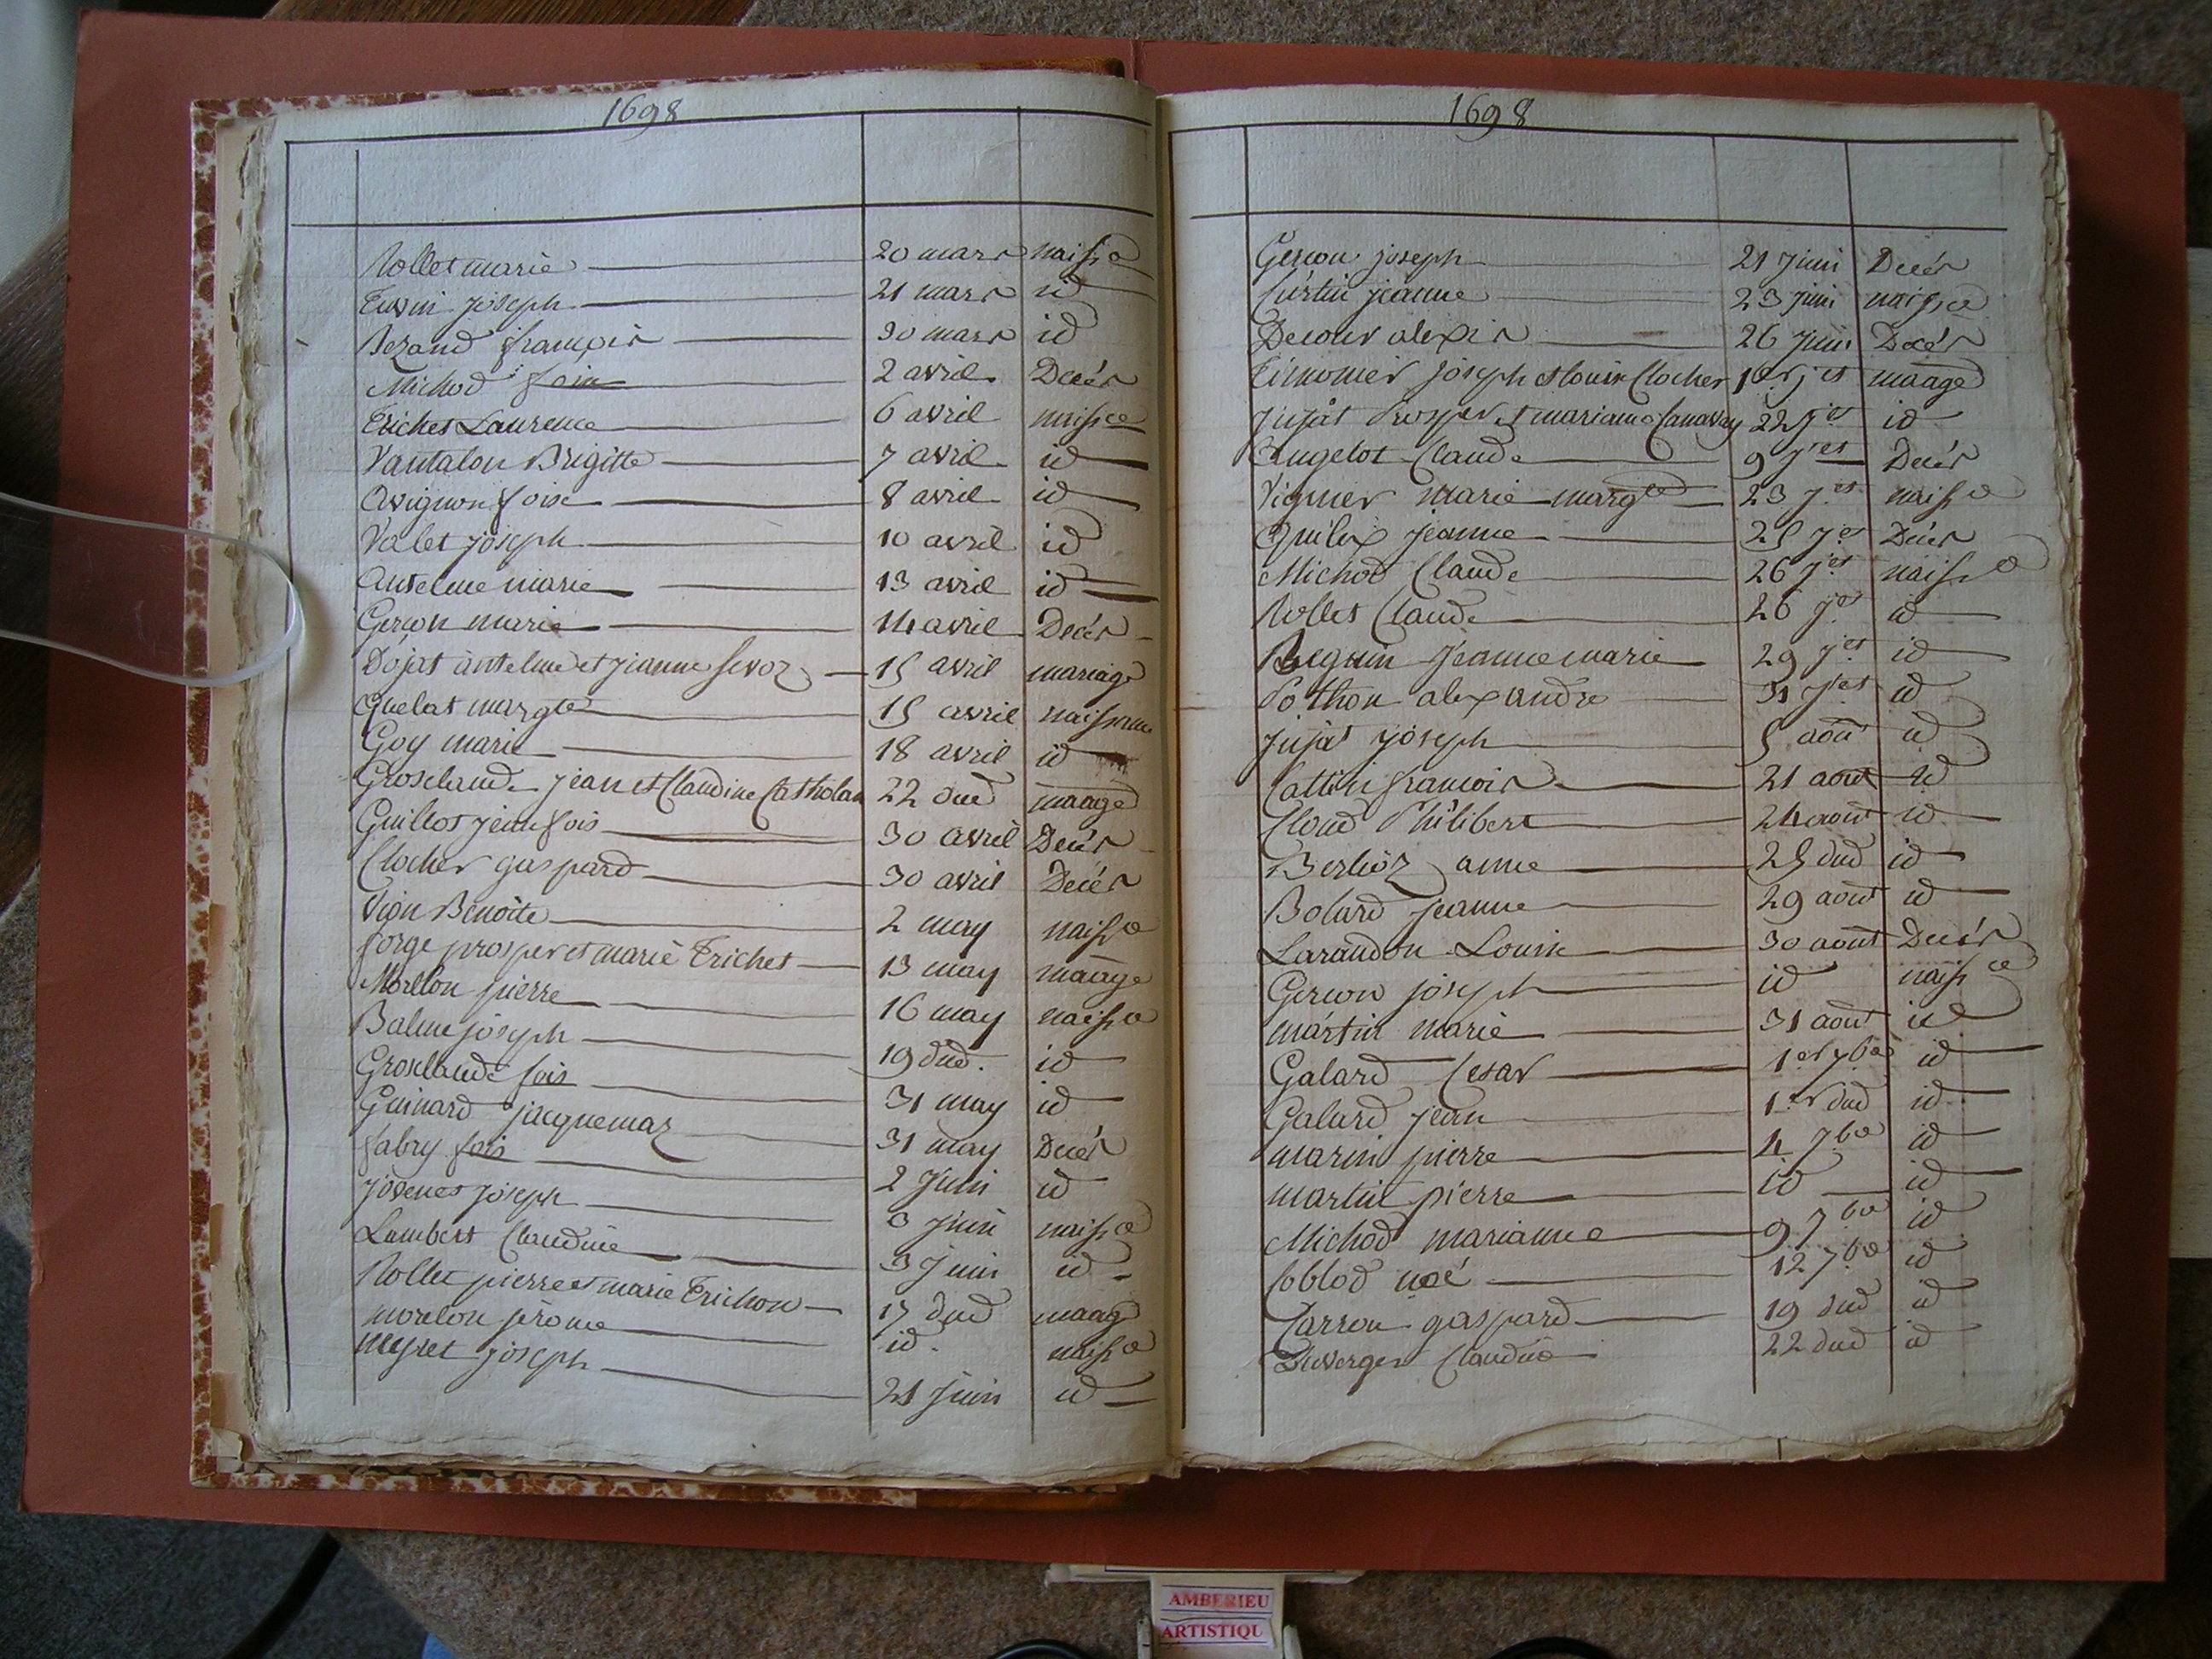 1698
Rollet marie 20 mars naissce
Tuvin joseph 21 mars id
Bezand françois 30 mars id
Michod fois 2 avril Decés
Trichet Laurence 6 avril naissce
Vantalon Brigitte 7 avril id
Avignon foise 8 avril id
Valet joseph 10 avril id
Antelme marie 13 avril id
Gercon marie 14 avril Decés
Dojat antelme et jeanne sevoz 15 avril mariage
Quelat margte 15 avril naissance
Goy marie 18 avril id
Groselaude jean et Claudine Catholan 22 dud maage
Guillot jean fois 30 avril Decés
Clocher gaspard 30 avril Decés
Vion Benoite 2 may naissce
forge prosper et marie Trichet 13 may maage
Morelon pierre 16 may naissce
Balme joseph 19 dud. id
Groselaude fois 31 may id
Guinard jacquemaz 31 may Decés
fabry fois 2 juin id
joseph juin naissce
Lambert Claudine 3 juin id
Rollet pierre et marie Trichon 17 dud maag
morelon jérome id. naissce
meyret joseph 21 juin id
1698
Gercon joseph 21 juin Decés
Curtin jeanne 23 juin naissce
Decour alexis 26 juin Decés
joseph et louise Clocher 1er jet maage
Jujat prosper et marianne 22 jet id
Bugelot Claude 9 jet Decés
Vignier marie margte 23 jet naissce
jeanne 25 jet Decés
Michod Claude 26 jet naissce
Rollet Claude 26 jet id
Beguin jeanne marie 29 jet id
Pothon alexandre 31 jet id
Jujat joseph 5 aout id
Cattin francois 21 aout id
Cloud Philibert 24 aout id
Berlioz anne 25 dud id
Bolard jeanne 29 aout id
Larandon Louise 30 aout Decés
Gercon joseph id naissce
martin marie 31 aout id
Galard Cesar 1er 7bre id
Galard jean 1er dud id
marin pierre 4 7bre id
martin pierre id id
Michod marianne 9 7bre id
Coblod noé 12 7bre id
Carron gaspard 19 dud id
Duverger Claudine 22 dud id
AMBERIEU
ARTISTIQU